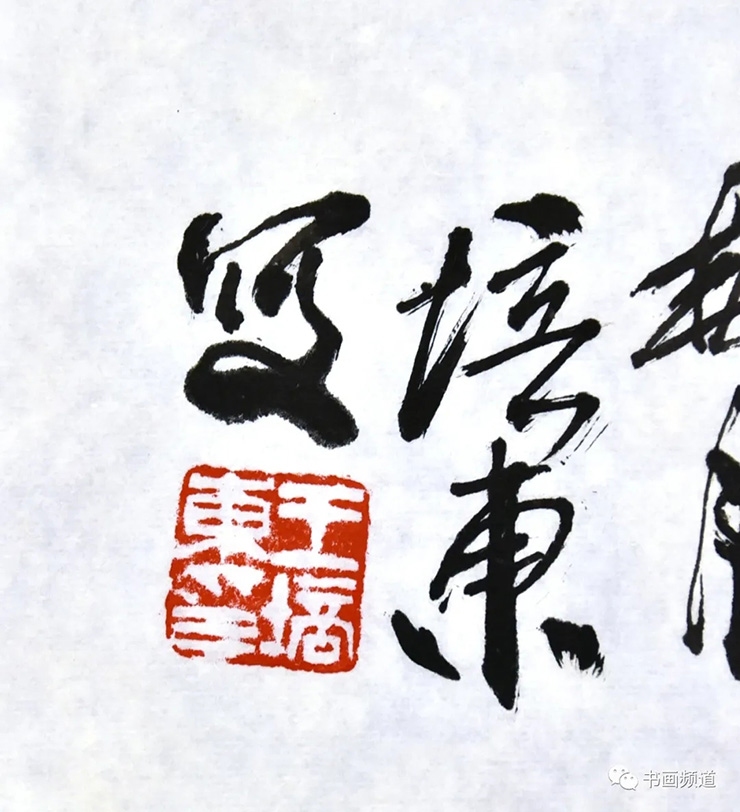 培東
寫
王培東
书画频道